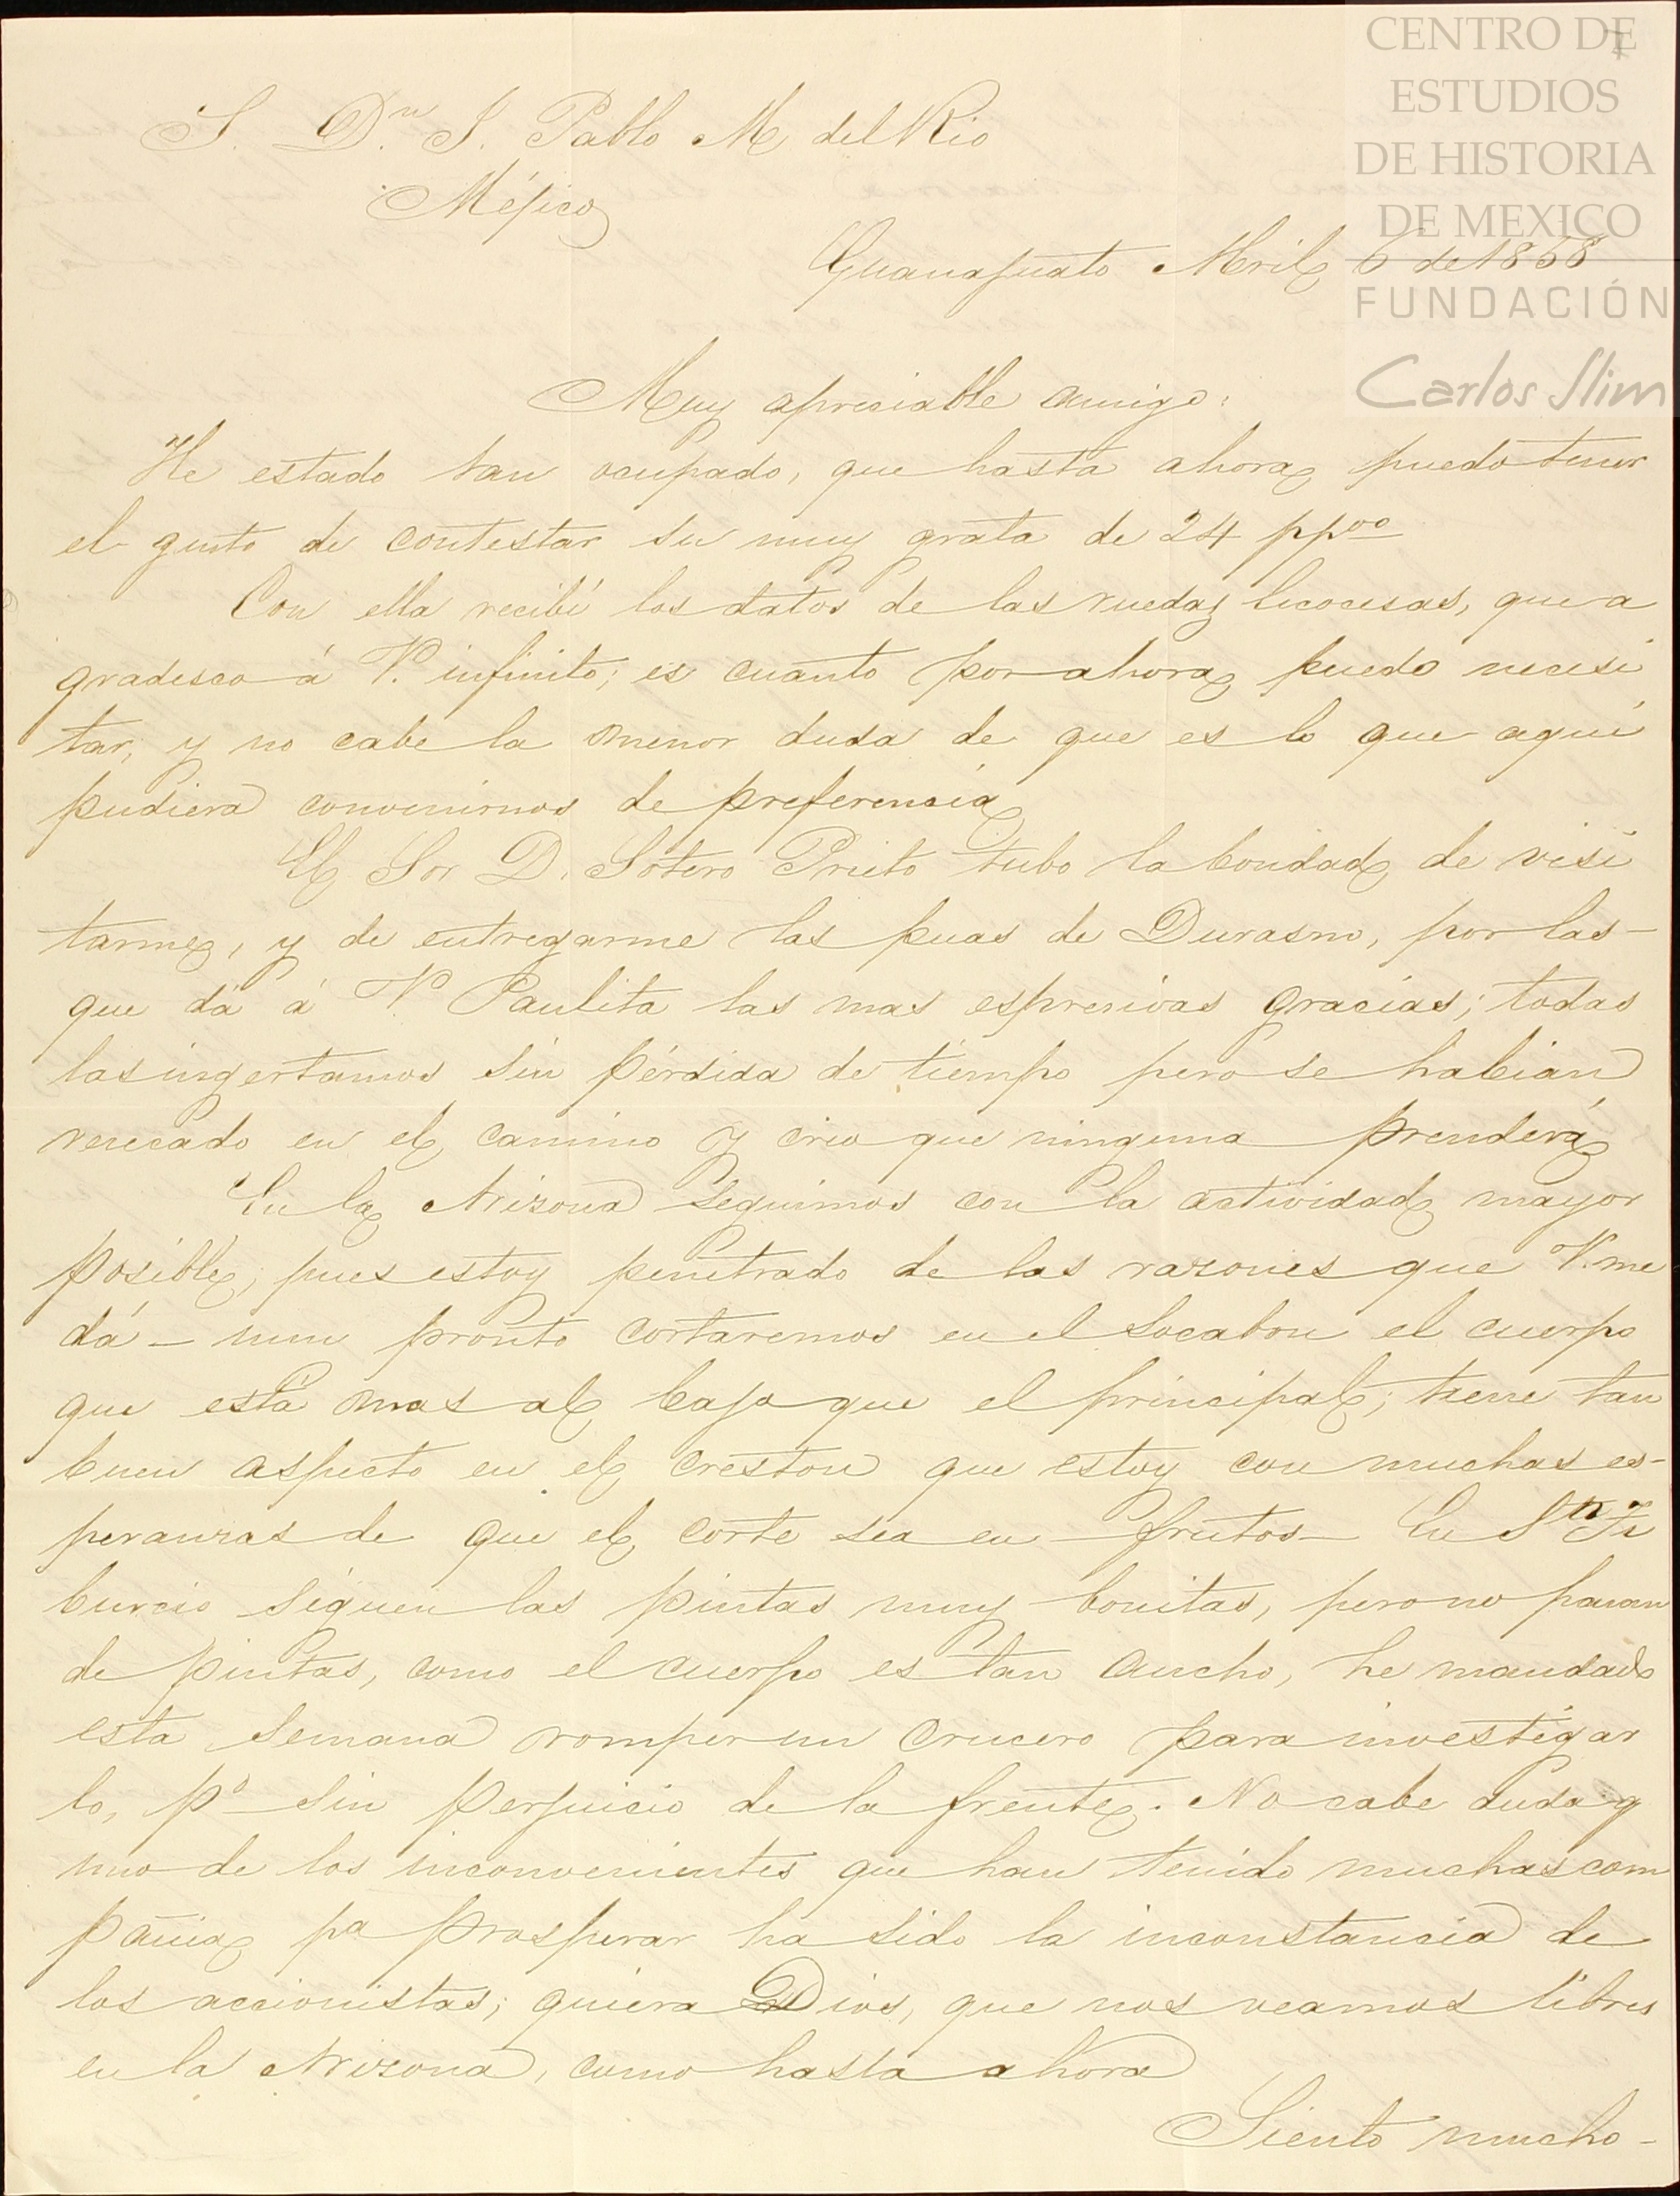 CENTRO DE
ESTUDIOS
DE HISTORIA
DE MEXICO
FUNDACIÓN
Carlos Slim
S. Dn. J. Pablo M del Rio
Méjico
Guanajuato Abril 6 de 1868
Muy apreciable amigo:
He estado tan ocupado, que hasta ahora puedo tener
el gusto de contestar su muy grata de 24 ppdo
Con ella recibí los datos de las ruedas, que a
gradesco á V. infinito; es cuanto por ahora puedo necesi
tar, y no cabe la menor duda de que es lo que aquí
pudiera convenirnos de preferencia
El Sor D. Sotero Prieto tubo la bondad de visi
tarme, y de entregarme las puas de Durasno, por las-
que dá á V. Paulita las mas espresivas gracias; todas
las ingertamos sin pérdida de tiempo pero se habian
resecado en el camino y creo que ninguna prenderá
En la Arizona seguimos con la actividad mayor
posible, pues estoy penetrado de las razones que V. me
dá - muy pronto cortaremos en el socabon el cuerpo
que está mas al bajo que el principal; tiene tan
buen aspecto en el creston que estoy con muchas es-
peranzas de que el corte sea en frutos - En Sn Ti
burcio siguen las pintas muy bonitas, pero no pasan
de pintas, como el cuerpo es tan ancho, he mandado
esta semana romper un crucero para investigar
lo, po sin perjuicio de la frente. No cabe duda q
uno de los inconvenientes que han tenido muchas com
pañias pa prosperar ha sido la inconstancia de
los accionistas; quiera Dios, que nos veamos libres
en la Arizona, como hasta ahora
Siento mucho-